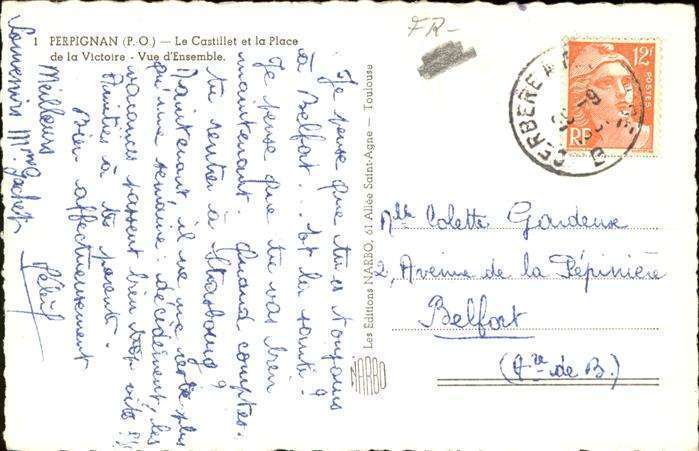 1 PERPIGNAN (P.-O.) — Le Castillet et la Place
de la Victoire - Vue d'Ensemble.
Je pense que tu es toujours
à Belfort... et la santé ?
Je pense que tu vas bien
maintenant. Quand comptes-
tu rentrer à Strasbourg ?
Maintenant, il ne me reste plus
qu'une semaine : décidément, les
vacances passent bien trop vite !!
Amitiés à tes parents.
Bien affectueusement
Meilleurs
Souvenirs Mme
Les Editions NARBO, 61 Allée Saint-Agne — Toulouse
NARBO
FR-
CERBERE A
12F
POSTES
RF
Mlle Colette Gaudeuse
2, Avenue de la Pépinière
Belfort
(Tre de B.)